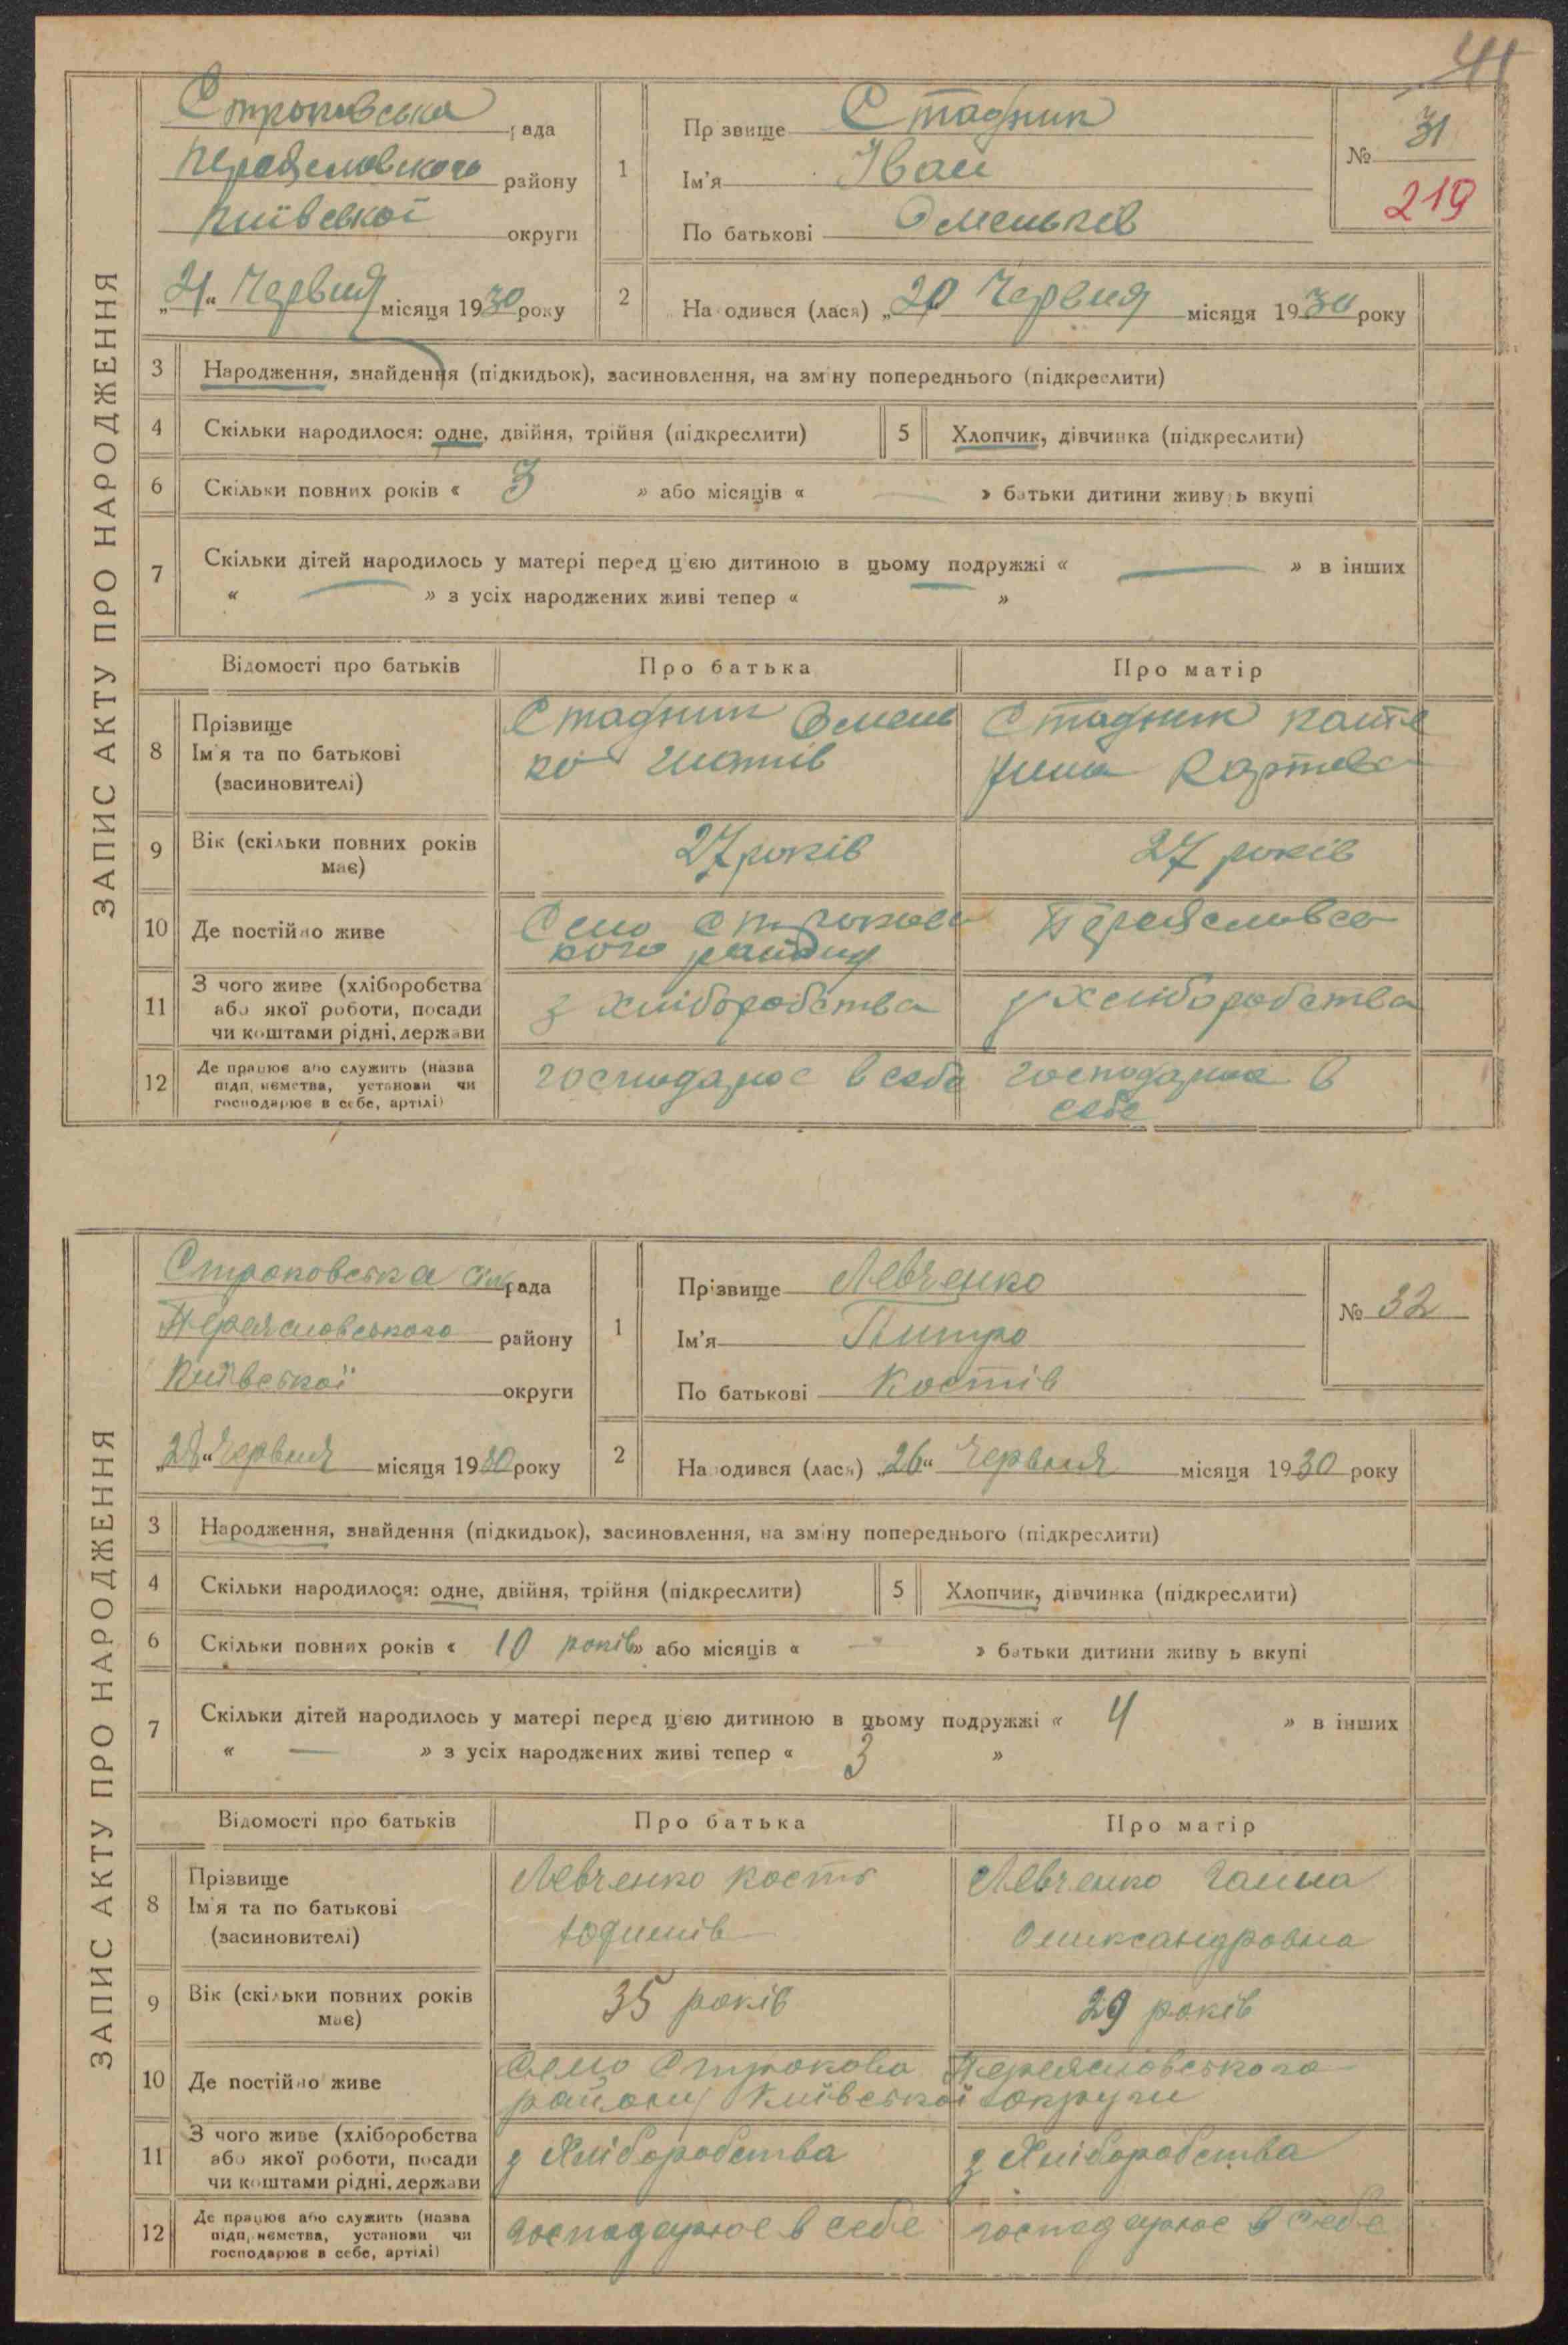 41
ЗАПИС АКТУ ПРО НАРОДЖЕННЯ
Строковська рада
Переяславского району
Київської округи
„21“ Червня місяця 1930 року
1
Прізвище Стадник
Ім'я Іван
По батькові Омельків
№ 31
219
2
Народився (лася) „20 Червня місяця 1930 року
3 Народження, знайдення (підкидьок), засиновлення, на зміну попереднього (підкреслити)
4 Скільки народилося: одне, двійня, трійня (підкреслити) 5 Хлопчик, дівчинка (підкреслити)
6 Скільки повних років « 3 » або місяців « — » батьки дитини живуть вкупі
7 Скільки дітей народилось у матері перед цією дитиною в цьому подружжі « — » в інших
« — » з усіх народжених живі тепер « — »
Відомості про батьків Про батька Про матір
8 Прізвище Ім'я та по батькові (засиновителі)
Стадник Омель
ко
Стадник Кате
рина
9 Вік (скільки повних років має) 27 років 27 років
10 Де постійно живе Село Строкова Переяславсь
кого району
11 З чого живе (хліборобства або якої роботи, посади чи коштами рідні, держави з хліборобства з хліборобства
12 Де працює або служить (назва підприємства, установи чи господарює в себе, артілі) господарює в себе господарює в
себе
ЗАПИС АКТУ ПРО НАРОДЖЕННЯ
Строковська сіл рада
Переясловського району
Київської округи
„28“ Червня місяця 1930 року
1
Прізвище Левченко
Ім'я Питро
По батькові Костів
№ 32
2
Народився (лася) „26“ Червня місяця 1930 року
3 Народження, знайдення (підкидьок), засиновлення, на зміну попереднього (підкреслити)
4 Скільки народилося: одне, двійня, трійня (підкреслити) 5 Хлопчик, дівчинка (підкреслити)
6 Скільки повних років « 10 років » або місяців « — » батьки дитини живуть вкупі
7 Скільки дітей народилось у матері перед цією дитиною в цьому подружжі « 4 » в інших
« — » з усіх народжених живі тепер « 3 »
Відомості про батьків Про батька Про матір
8 Прізвище Ім'я та по батькові (засиновителі)
Левченко Кость
Левченко Ганна
Олександровна
9 Вік (скільки повних років має) 35 років 29 років
10 Де постійно живе Село Строкова Переясловського
району Київської округи
11 З чого живе (хліборобства або якої роботи, посади чи коштами рідні, держави з Хліборобства з Хліборобства
12 Де працює або служить (назва підприємства, установи чи господарює в себе, артілі) господарює в себе господарює в себе